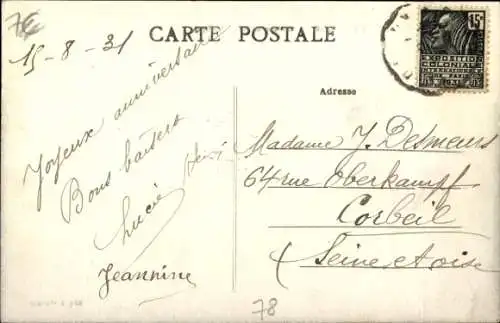 76
15-8-31
CARTE POSTALE
15c
EXPOSITION
COLONIALE
INTERNATIONALE
Adresse
Joyeux anniversaire
Bons baisers
Lucie Henri
Jeannine
Madame J. Desmeurs
64 rue Oberkampf
Corbeil
(Seine et oise
78